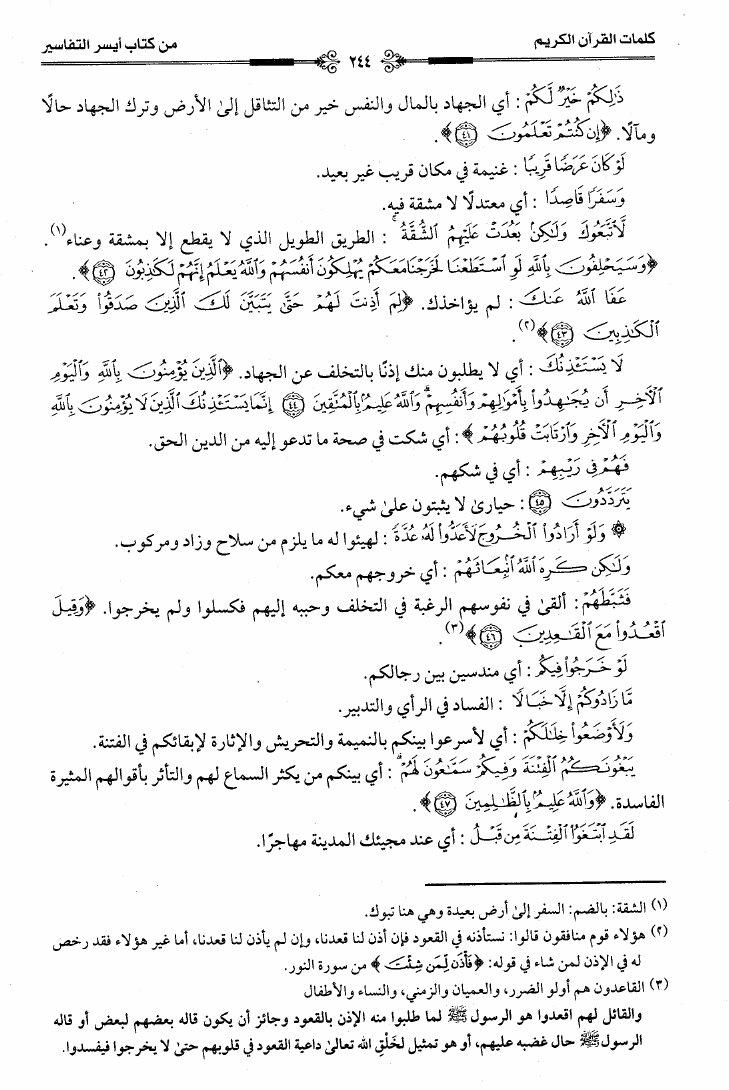 كلمات القرآن الكريم
٢٤٤
من كتاب أيسر التفاسير
ذَٰلِكُمْ خَيْرٌ لَّكُمْ : أي الجهاد بالمال والنفس خير من التثاقل إلىٰ الأرض وترك الجهاد حالًا
ومآلًا. ﴿إِن كُنتُمْ تَعْلَمُونَ ٤١﴾.
لَوْ كَانَ عَرَضًا قَرِيبًا : غنيمة في مكان قريب غير بعيد.
وَسَفَرًا قَاصِدًا : أي معتدلًا لا مشقة فيه.
لَّاتَّبَعُوكَ وَلَٰكِنۢ بَعُدَتْ عَلَيْهِمُ الشُّقَّةُ ۚ : الطريق الطويل الذي لا يقطع إلا بمشقة وعناء(١).
﴿وَسَيَحْلِفُونَ بِاللَّهِ لَوِ اسْتَطَعْنَا لَخَرَجْنَا مَعَكُمْ يُهْلِكُونَ أَنفُسَهُمْ وَاللَّهُ يَعْلَمُ إِنَّهُمْ لَكَٰذِبُونَ ٤٢﴾.
عَفَا اللَّهُ عَنكَ : لم يؤاخذك. ﴿لِمَ أَذِنتَ لَهُمْ حَتَّىٰ يَتَبَيَّنَ لَكَ الَّذِينَ صَدَقُوا وَتَعْلَمَ
الْكَٰذِبِينَ ٤٣﴾(٢).
لَا يَسْتَـْٔذِنُكَ : أي لا يطلبون منك إذنًا بالتخلف عن الجهاد. ﴿الَّذِينَ يُؤْمِنُونَ بِاللَّهِ وَالْيَوْمِ
الْآخِرِ أَن يُجَٰهِدُوا بِأَمْوَٰلِهِمْ وَأَنفُسِهِمْ ۗ وَاللَّهُ عَلِيمٌۢ بِالْمُتَّقِينَ ٤٤ إِنَّمَا يَسْتَـْٔذِنُكَ الَّذِينَ لَا يُؤْمِنُونَ بِاللَّهِ
وَالْيَوْمِ الْآخِرِ وَارْتَابَتْ قُلُوبُهُمْ﴾ : أي شكت في صحة ما تدعو إليه من الدين الحق.
فَهُمْ فِي رَيْبِهِمْ : أي في شكهم.
يَتَرَدَّدُونَ ٤٥ : حيارىٰ لا يثبتون علىٰ شيء.
۞ وَلَوْ أَرَادُوا الْخُرُوجَ لَأَعَدُّوا لَهُۥ عُدَّةً : لهيئوا له ما يلزم من سلاح وزاد ومركوب.
وَلَٰكِن كَرِهَ اللَّهُ انۢبِعَاثَهُمْ : أي خروجهم معكم.
فَثَبَّطَهُمْ : ألقىٰ في نفوسهم الرغبة في التخلف وحببه إليهم فكسلوا ولم يخرجوا. ﴿وَقِيلَ
اقْعُدُوا مَعَ الْقَٰعِدِينَ ٤٦﴾(٣).
لَوْ خَرَجُوا فِيكُم : أي مندسين بين رجالكم.
مَّا زَادُوكُمْ إِلَّا خَبَالًا : الفساد في الرأي والتدبير.
وَلَأَوْضَعُوا خِلَٰلَكُمْ : أي لأسرعوا بينكم بالنميمة والتحريش والإثارة لإبقائكم في الفتنة.
يَبْغُونَكُمُ الْفِتْنَةَ وَفِيكُمْ سَمَّٰعُونَ لَهُمْ ۗ : أي بينكم من يكثر السماع لهم والتأثر بأقوالهم المثيرة
الفاسدة. ﴿وَاللَّهُ عَلِيمٌۢ بِالظَّٰلِمِينَ ٤٧﴾.
لَقَدِ ابْتَغَوُا الْفِتْنَةَ مِن قَبْلُ : أي عند مجيئك المدينة مهاجرًا.
(١) الشقة: بالضم: السفر إلىٰ أرض بعيدة وهي هنا تبوك.
(٢) هؤلاء قوم منافقون قالوا: نستأذنه في القعود فإن أذن لنا قعدنا، وإن لم يأذن لنا قعدنا، أما غير هؤلاء فقد رخص
له في الإذن لمن شاء في قوله: ﴿فَأْذَن لِّمَن شِئْتَ﴾ من سورة النور.
(٣) القاعدون هم أولو الضرر، والعميان والزمني، والنساء والأطفال
والقائل لهم اقعدوا هو الرسول ﷺ لما طلبوا منه الإذن بالقعود وجائز أن يكون قاله بعضهم لبعض أو قاله
الرسول ﷺ حال غضبه عليهم، أو هو تمثيل لخَلْقِ الله تعالىٰ داعية القعود في قلوبهم حتىٰ لا يخرجوا فيفسدوا.